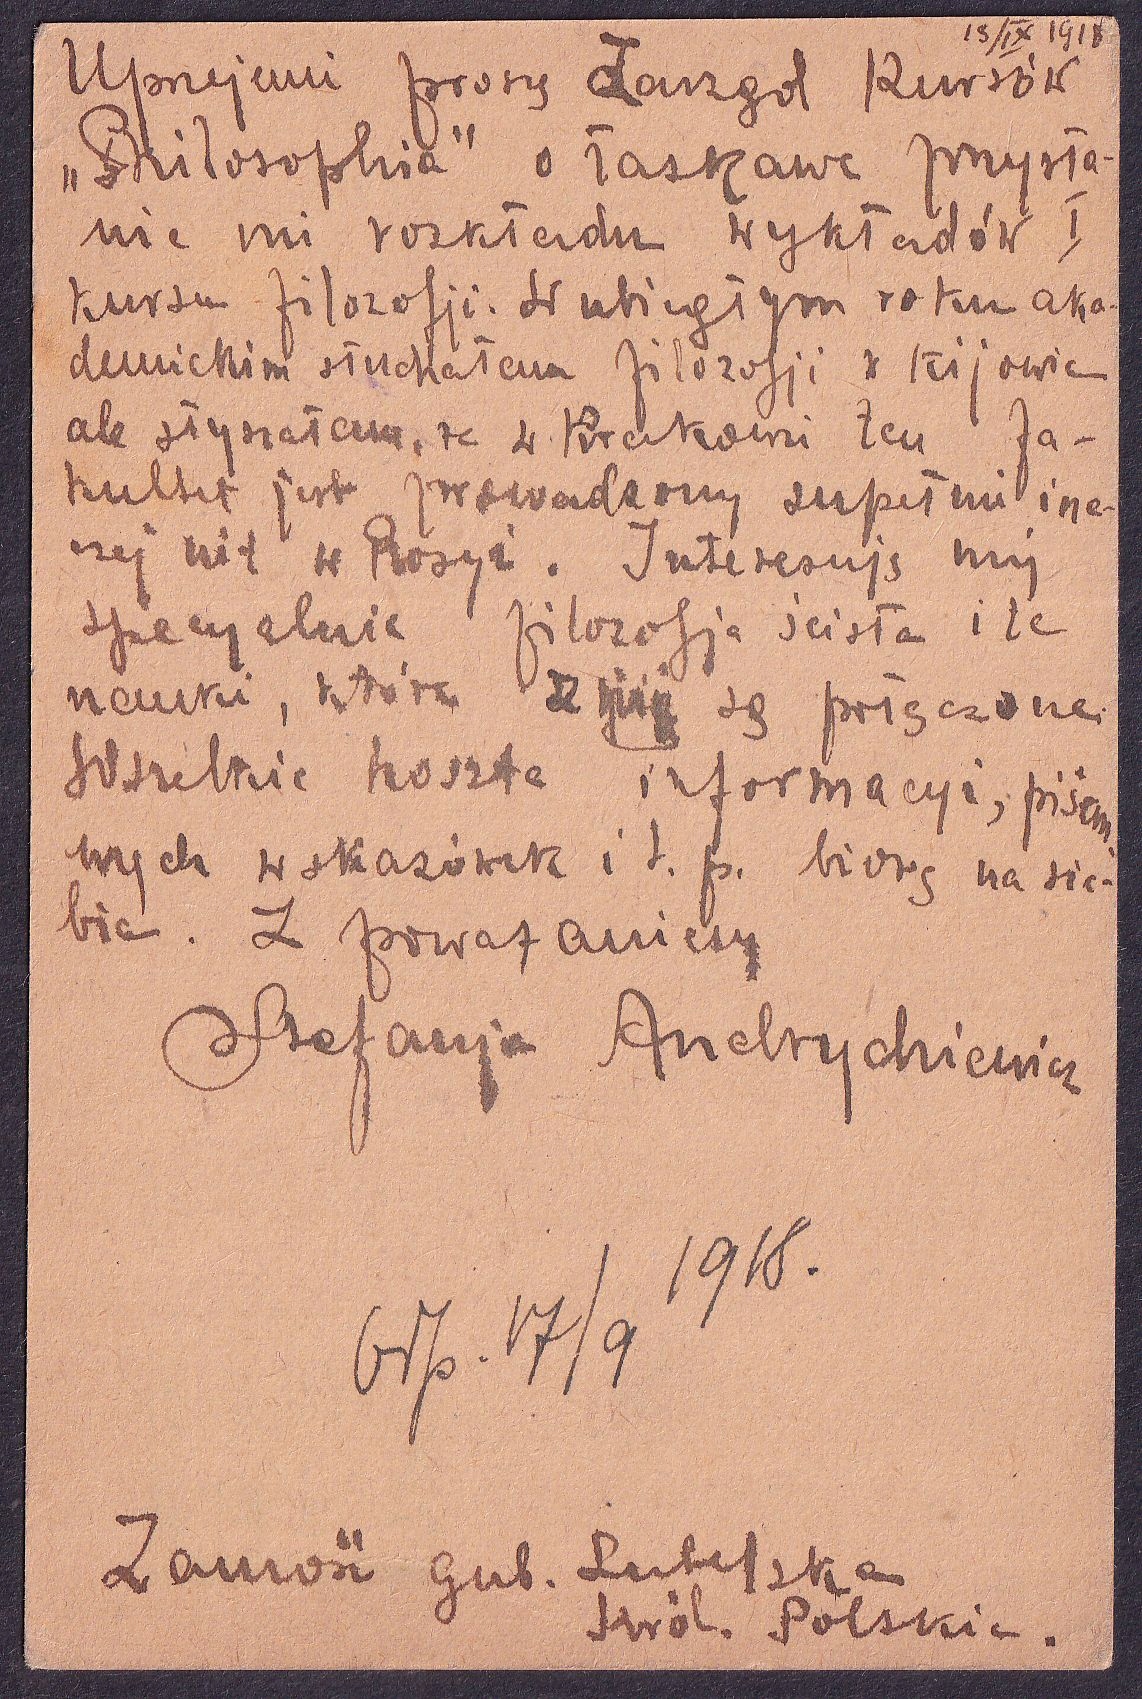 13/IX 1918
Uprzejmi proszę Zarząd Kursów
„Philosophia" o łaskawe przysła-
nie mi rozkładu wykładów I
kursu filozofji. W ubiegłym roku aka-
demickim słuchałem filozofji w Kijowie
ale słyszałem, że w Krakowi ten fa-
kultet jest prowadzony zupełni ina-
czej niż w Rosyi. Interesuję mię
specyalnie filozofja ścisła i te
nauki, które z nią są połączone.
Wszelkie koszta informacyi, piśmien
nych wskazówek i t. p. biorę na sie-
bie. Z poważaniem
Stefanja Andrychiewicz
Odp. 17/9 1918.
Zamość gub. Lubelska
Król. Polskie.